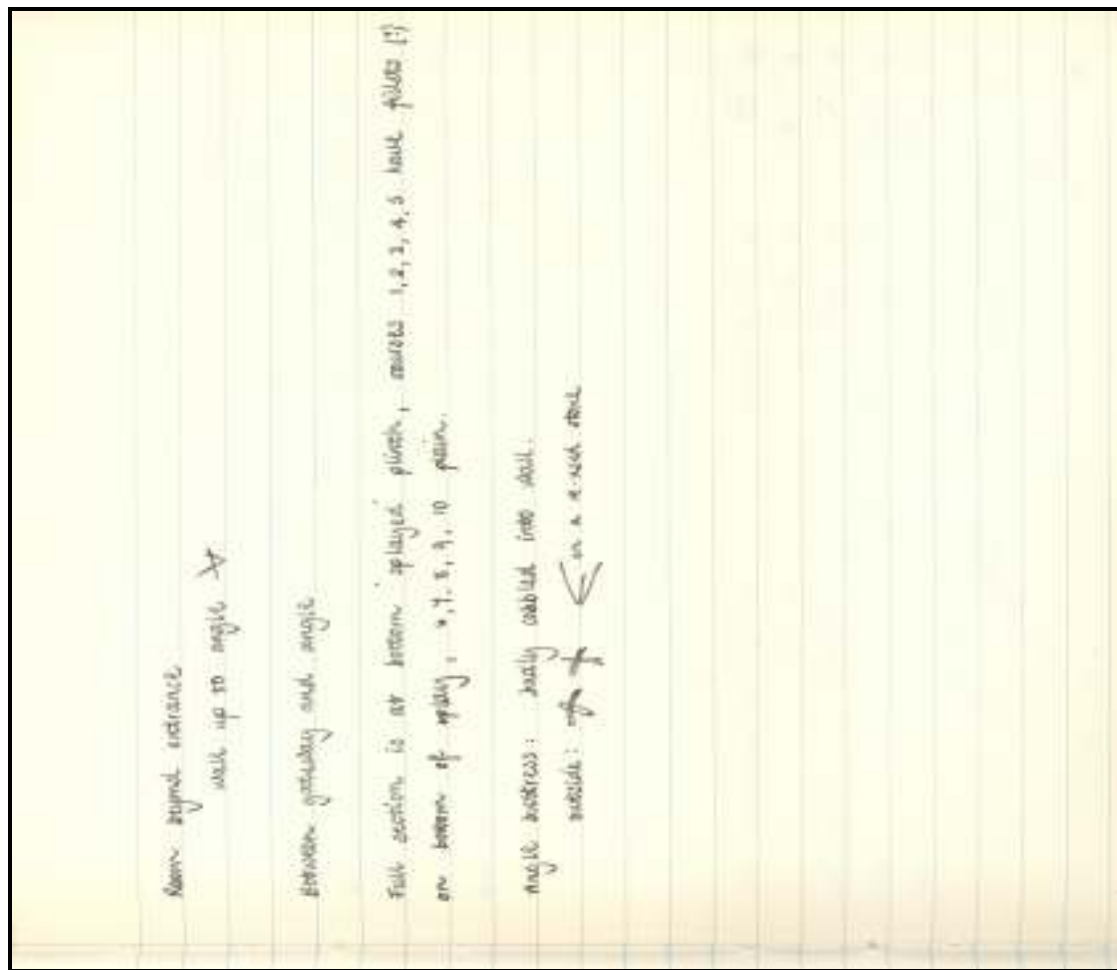 Room beyond entrance
wall up to angle
Between gateway and angle
Full section is at bottom splayed plinth, courses 1, 2, 3, 4, 5 have fillets (?)
on bottom of splay, 6, 7, 8, 9, 10 plain.
Angle buttress: badly cobbled into wall.
outside: on a re-used stone